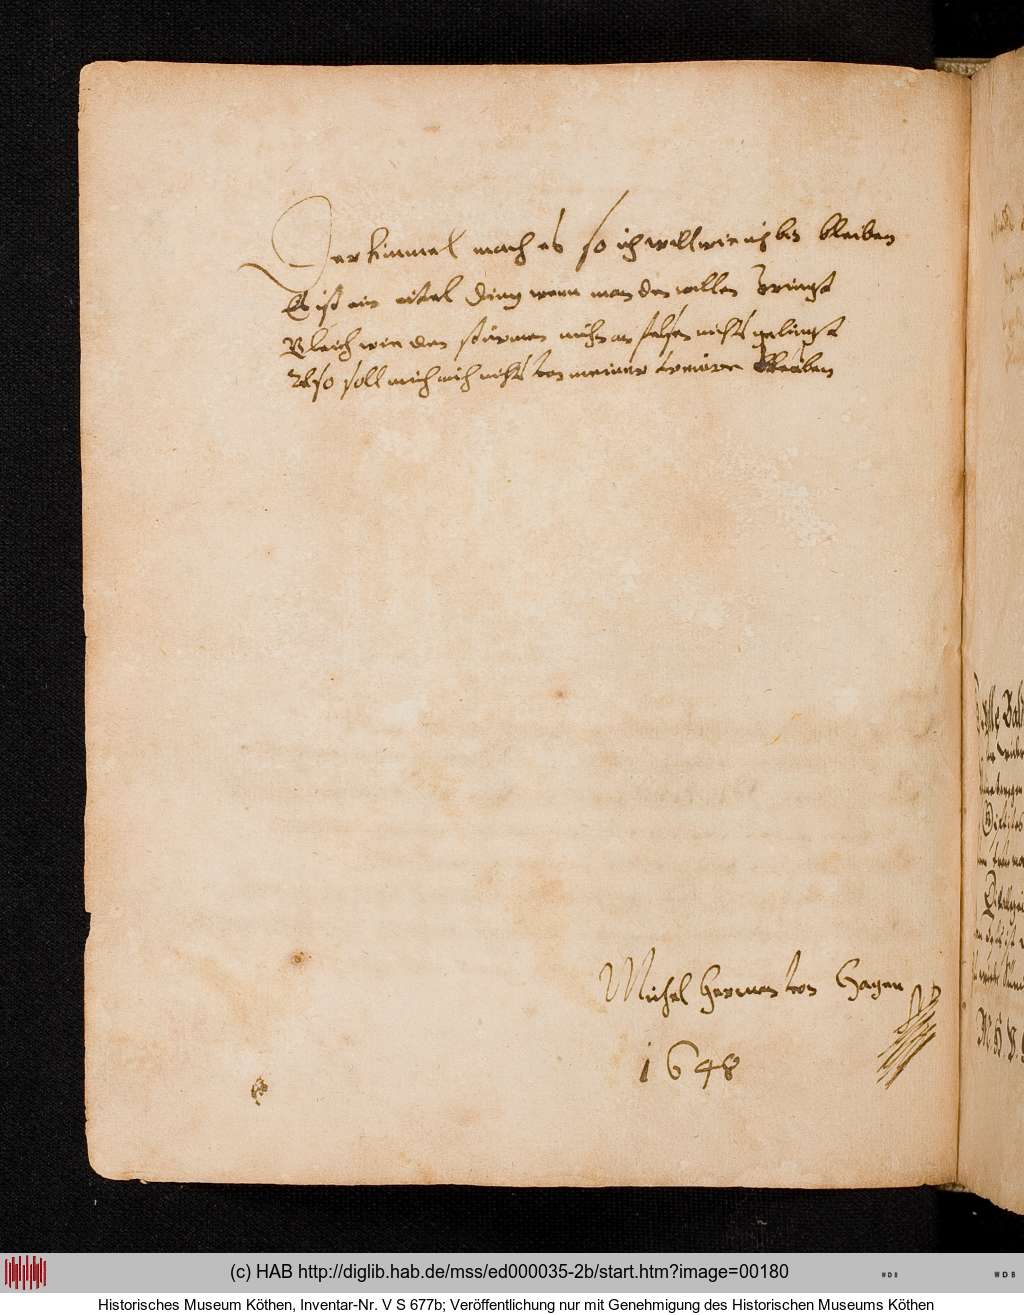 Der himmel mach es so ich will wie ich bin bleiben
Es ist ein eitel ding wenn man den willen zwingt
Gleich wie den stürmen nichts am felsen nichts gelingt
Also soll mich auch nichts von meiner treüwe
Michel Herman von Hagen
1648
(c) HAB http://diglib.hab.de/mss/ed000035-2b/start.htm?image=00180
Historisches Museum Köthen, Inventar-Nr. V S 677b; Veröffentlichung nur mit Genehmigung des Historischen Museums Köthen